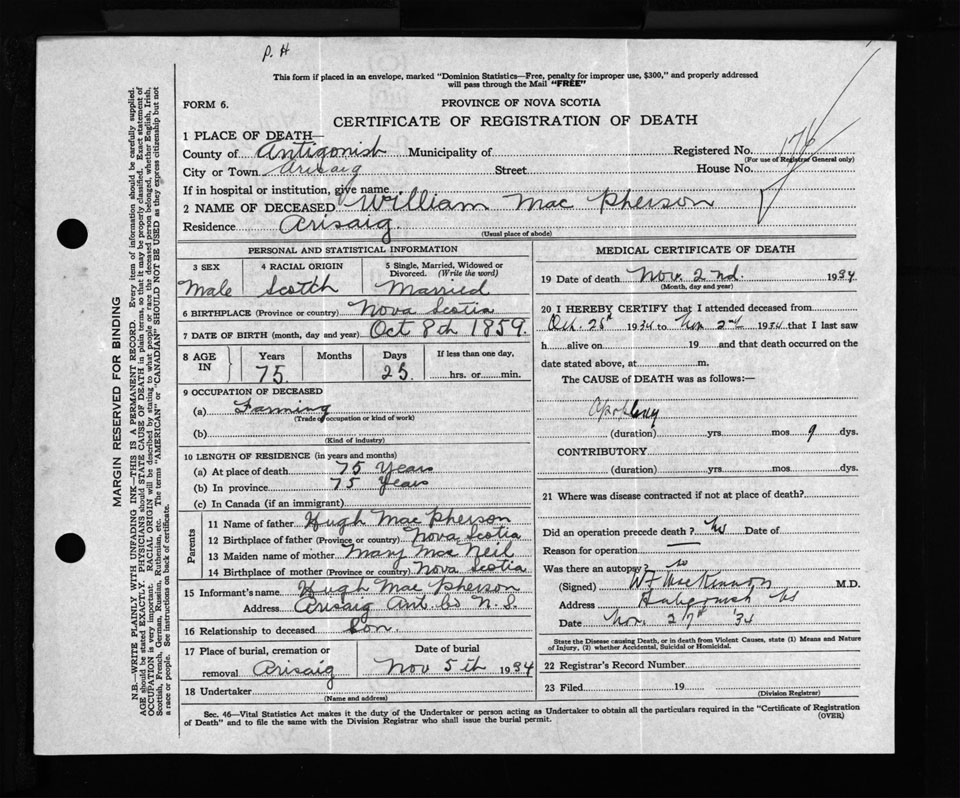 P. H
This form if placed in an envelope, marked "Dominion Statistics—Free, penalty for improper use, $300," and properly addressed
will pass through the Mail "FREE"
FORM 6.
PROVINCE OF NOVA SCOTIA
CERTIFICATE OF REGISTRATION OF DEATH
176
1 PLACE OF DEATH—
County of Antigonish Municipality of Registered No.
(For use of Registrar General only)
City or Town Arisaig Street House No.
If in hospital or institution, give name
2 NAME OF DECEASED William Mac Pherson
Residence Arisaig.
(Usual place of abode)
PERSONAL AND STATISTICAL INFORMATION
3 SEX 4 RACIAL ORIGIN 5 Single, Married, Widowed or
Divorced. (Write the word)
Male Scotch Married
6 BIRTHPLACE (Province or country) Nova Scotia
7 DATE OF BIRTH (month, day and year) Oct 8th 1859.
8 AGE IN Years Months Days If less than one day,
75. 25 hrs. or min.
9 OCCUPATION OF DECEASED
(a) Farming
(Trade occupation or kind of work)
(b)
(Kind of industry)
10 LENGTH OF RESIDENCE (in years and months)
(a) At place of death 75 Years
(b) In province 75 Years
(c) In Canada (if an immigrant)
Parents
11 Name of father Hugh Mac Pherson
12 Birthplace of father (Province or country) Nova Scotia
13 Maiden name of mother Mary Mac Neil
14 Birthplace of mother (Province or country) Nova Scotia
15 Informant's name Hugh Mac Pherson
Address Arisaig Ant. Co N. S.
16 Relationship to deceased Son.
17 Place of burial, cremation or Date of burial
removal Arisaig Nov 5th 1934
18 Undertaker
(Name and address)
MEDICAL CERTIFICATE OF DEATH
19 Date of death Nov. 2nd. 1934
(Month, day and year)
20 I HEREBY CERTIFY that I attended deceased from
Oct. 25th 1934 to Nov 2nd 1934 that I last saw
h alive on 19 and that death occurred on the
date stated above, at m.
The CAUSE of DEATH was as follows:—
(duration) yrs. mos 9 dys.
CONTRIBUTORY
(duration) yrs. mos. dys.
21 Where was disease contracted if not at place of death?
Did an operation precede death? No Date of
Reason for operation —
Was there an autopsy? no
(Signed) W F MacKinnon M.D.
Address Antigonish NS
Date Nov. 27th '34
State the Disease causing Death, or in death from Violent Causes, state (1) Means and Nature
of Injury, (2) whether Accidental, Suicidal or Homicidal.
22 Registrar's Record Number
23 Filed 19
(Division Registrar)
Sec. 46—Vital Statistics Act makes it the duty of the Undertaker or person acting as Undertaker to obtain all the particulars required in the "Certificate of Registration
of Death" and to file the same with the Division Registrar who shall issue the burial permit.
(OVER)
MARGIN RESERVED FOR BINDING
N.B.—WRITE PLAINLY WITH UNFADING INK—THIS IS A PERMANENT RECORD. Every item of information should be carefully supplied.
AGE should be stated EXACTLY. PHYSICIANS should STATE CAUSE OF DEATH in plain terms, so that it may be properly classified. Exact statement of
OCCUPATION is very important. RACIAL ORIGIN will be described by stating to what people or race the deceased person belonged, whether English, Irish,
Scottish, French, German, Russian, Ruthenian, etc. The terms "AMERICAN" or "CANADIAN" SHOULD NOT BE USED as they express citizenship but not
a race or people. See instructions on back of certificate.